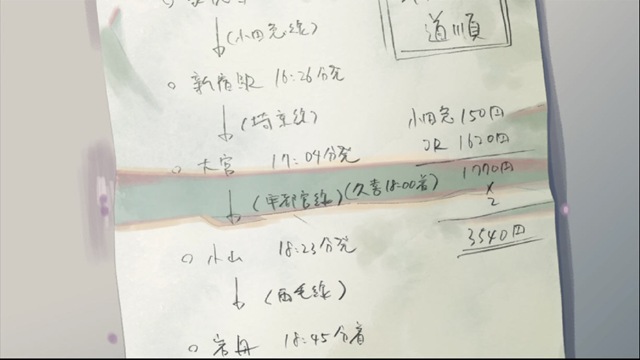 道順
↓(小田急線)
○ 新宿駅 16:26分発
↓(埼京線)
小田急 150円
JR 1620円
○ 大宮 17:04分発
1770円
×
2
↓(宇都宮線)(久喜18:00着)
3540円
○ 小山 18:23分発
↓(両毛線)
○ 岩舟 18:45分着